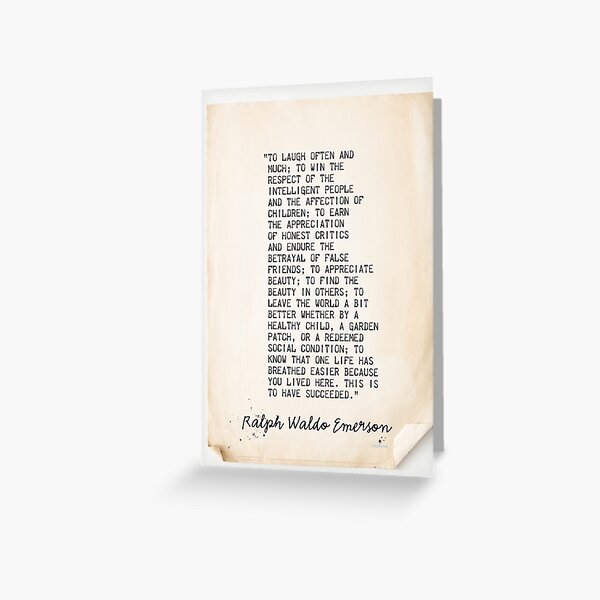 "TO LAUGH OFTEN AND
MUCH; TO WIN THE
RESPECT OF THE
INTELLIGENT PEOPLE
AND THE AFFECTION OF
CHILDREN; TO EARN
THE APPRECIATION
OF HONEST CRITICS
AND ENDURE THE
BETRAYAL OF FALSE
FRIENDS; TO APPRECIATE
BEAUTY; TO FIND THE
BEAUTY IN OTHERS; TO
LEAVE THE WORLD A BIT
BETTER WHETHER BY A
HEALTHY CHILD, A GARDEN
PATCH, OR A REDEEMED
SOCIAL CONDITION; TO
KNOW THAT ONE LIFE HAS
BREATHED EASIER BECAUSE
YOU LIVED HERE. THIS IS
TO HAVE SUCCEEDED."
Ralph Waldo Emerson